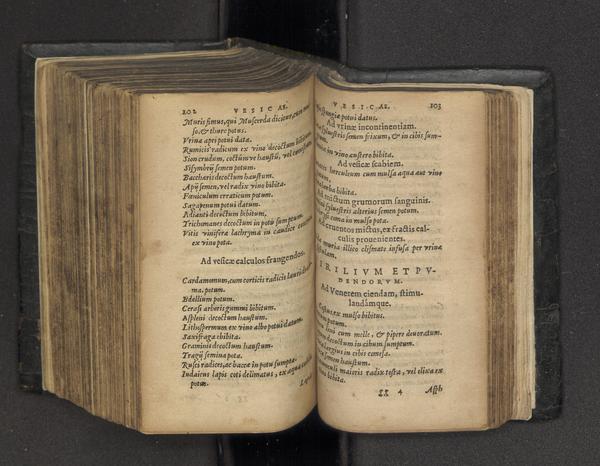 202 VESICAE.
Muris fimus, qui Muscerda dicitur, cum
so, & thure potus.
Vrina apri potui data.
Rumicis radicum ex vino decoctum
Sion crudum, coctúmve haustū, vel
Sisymbrij semen potum.
Baccharis decoctum haustum.
Apij semen, vel radix vino bibita.
Fœniculum erraticum potum.
Sagapenum potui datum.
Adianti decoctum bibitum.
Trichomanes decoctum in potū sumptum.
Vitis viniferæ lachryma in caudice
ex vino pota.
Ad vesicæ calculos frangendos.
Cardamomum, cum corticis radicis lauri
ma, potum.
Bdellium potum.
Cerasi arboris gummi bibitum.
Aspleni decoctum haustum.
Lithospermum ex vino albo potui datum.
Saxifraga ebibita.
Graminis decoctum haustum.
Tragij semina pota.
Rusci radices, ac baccæ in potu sumptæ.
Iudaicus lapis coti delimatus, ex aqua
potus.
VESICAE. 203
potui datus.
Ad vrinæ incontinentiam.
sylvestris semen frixum, & in cibis sum-
in vino austero bibita.
Ad vesicæ scabiem.
herculeum cum mulsa aqua aut vino
herba bibita.
Ad mictum grumorum sanguinis.
sylvestris alterius semen potum.
coma in mulso pota.
Ad cruentos mictus, ex fractis cal-
culis prouenientes.
muria illico clismate infusa per vrinæ
VIRILIVM ET PV-
DENDORVM.
Ad Venerem ciendam, stimu-
landámque.
ex mulso bibitus.
potum.
cum melle, & pipere deuoratum.
decoctum in cibum sumptum.
in cibis comesa.
semen haustum.
maioris radix tosta, vel elixa ex
bibita.
4 Asph